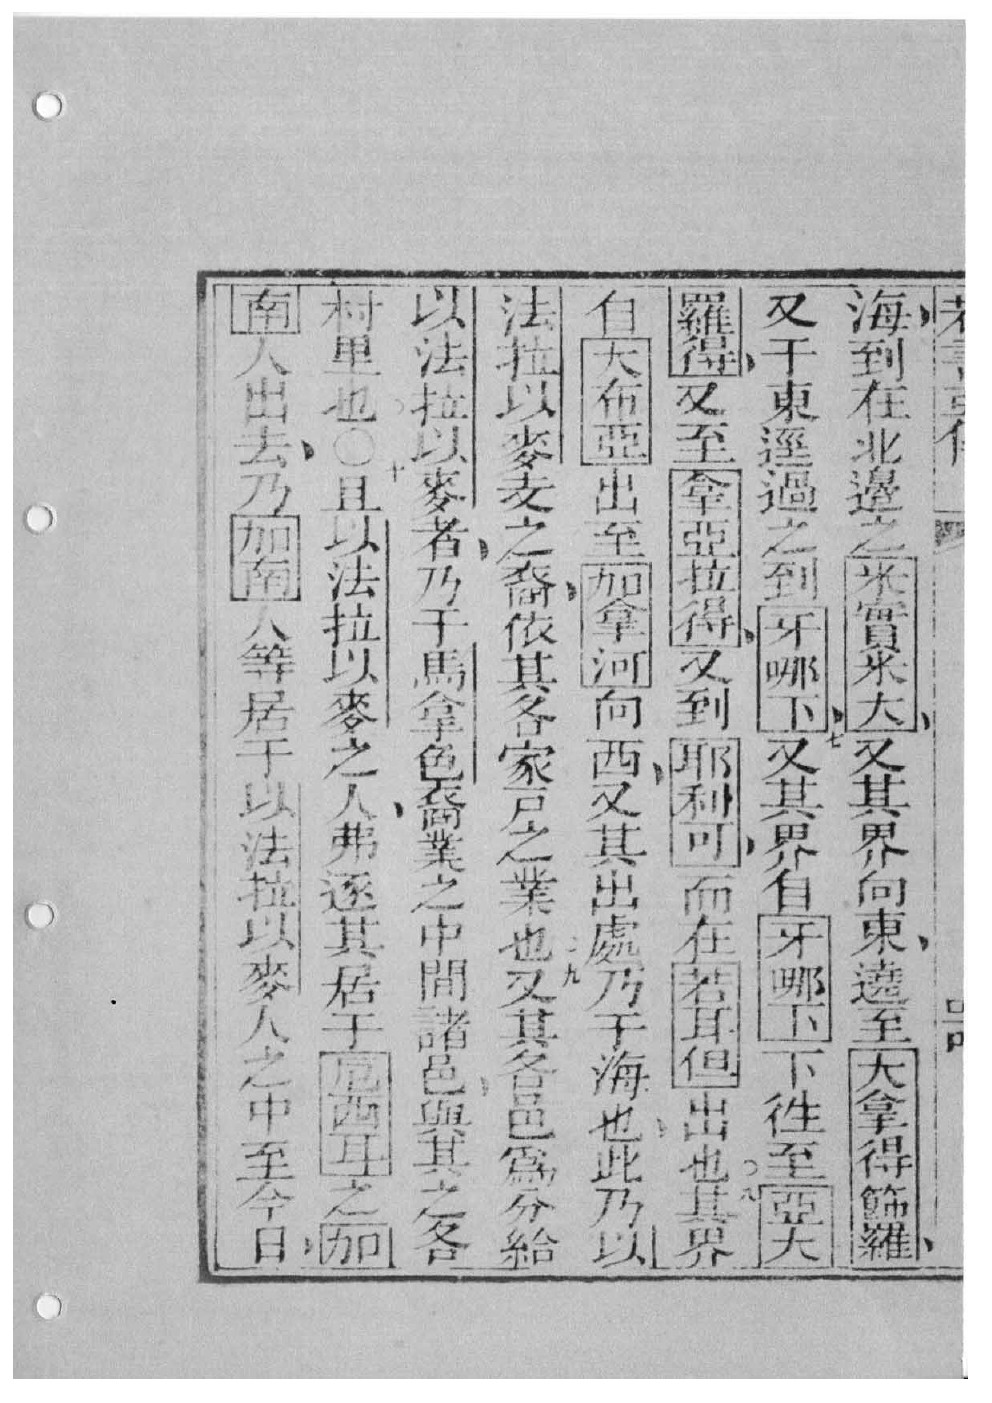 海到在北邊之米實米大又其界向東遶至大拿得篩羅
又于東逕過之到牙哪下七又其界自牙哪下下徃至亞大
羅得又至拿亞拉得又到耶利可而在若耳但出也○八其界
自大布亞出至加拿河向西又其出處乃于海也此乃以
法拉以麥支之裔依其各家戸之業也九又其各邑爲分給
以法拉以麥者乃于馬拿色裔業之中間諸邑與其之各
村里也○十且以法拉以麥之人弗逐其居于厄西耳之加
南人出去乃加南人等居于以法拉以麥人之中至今日